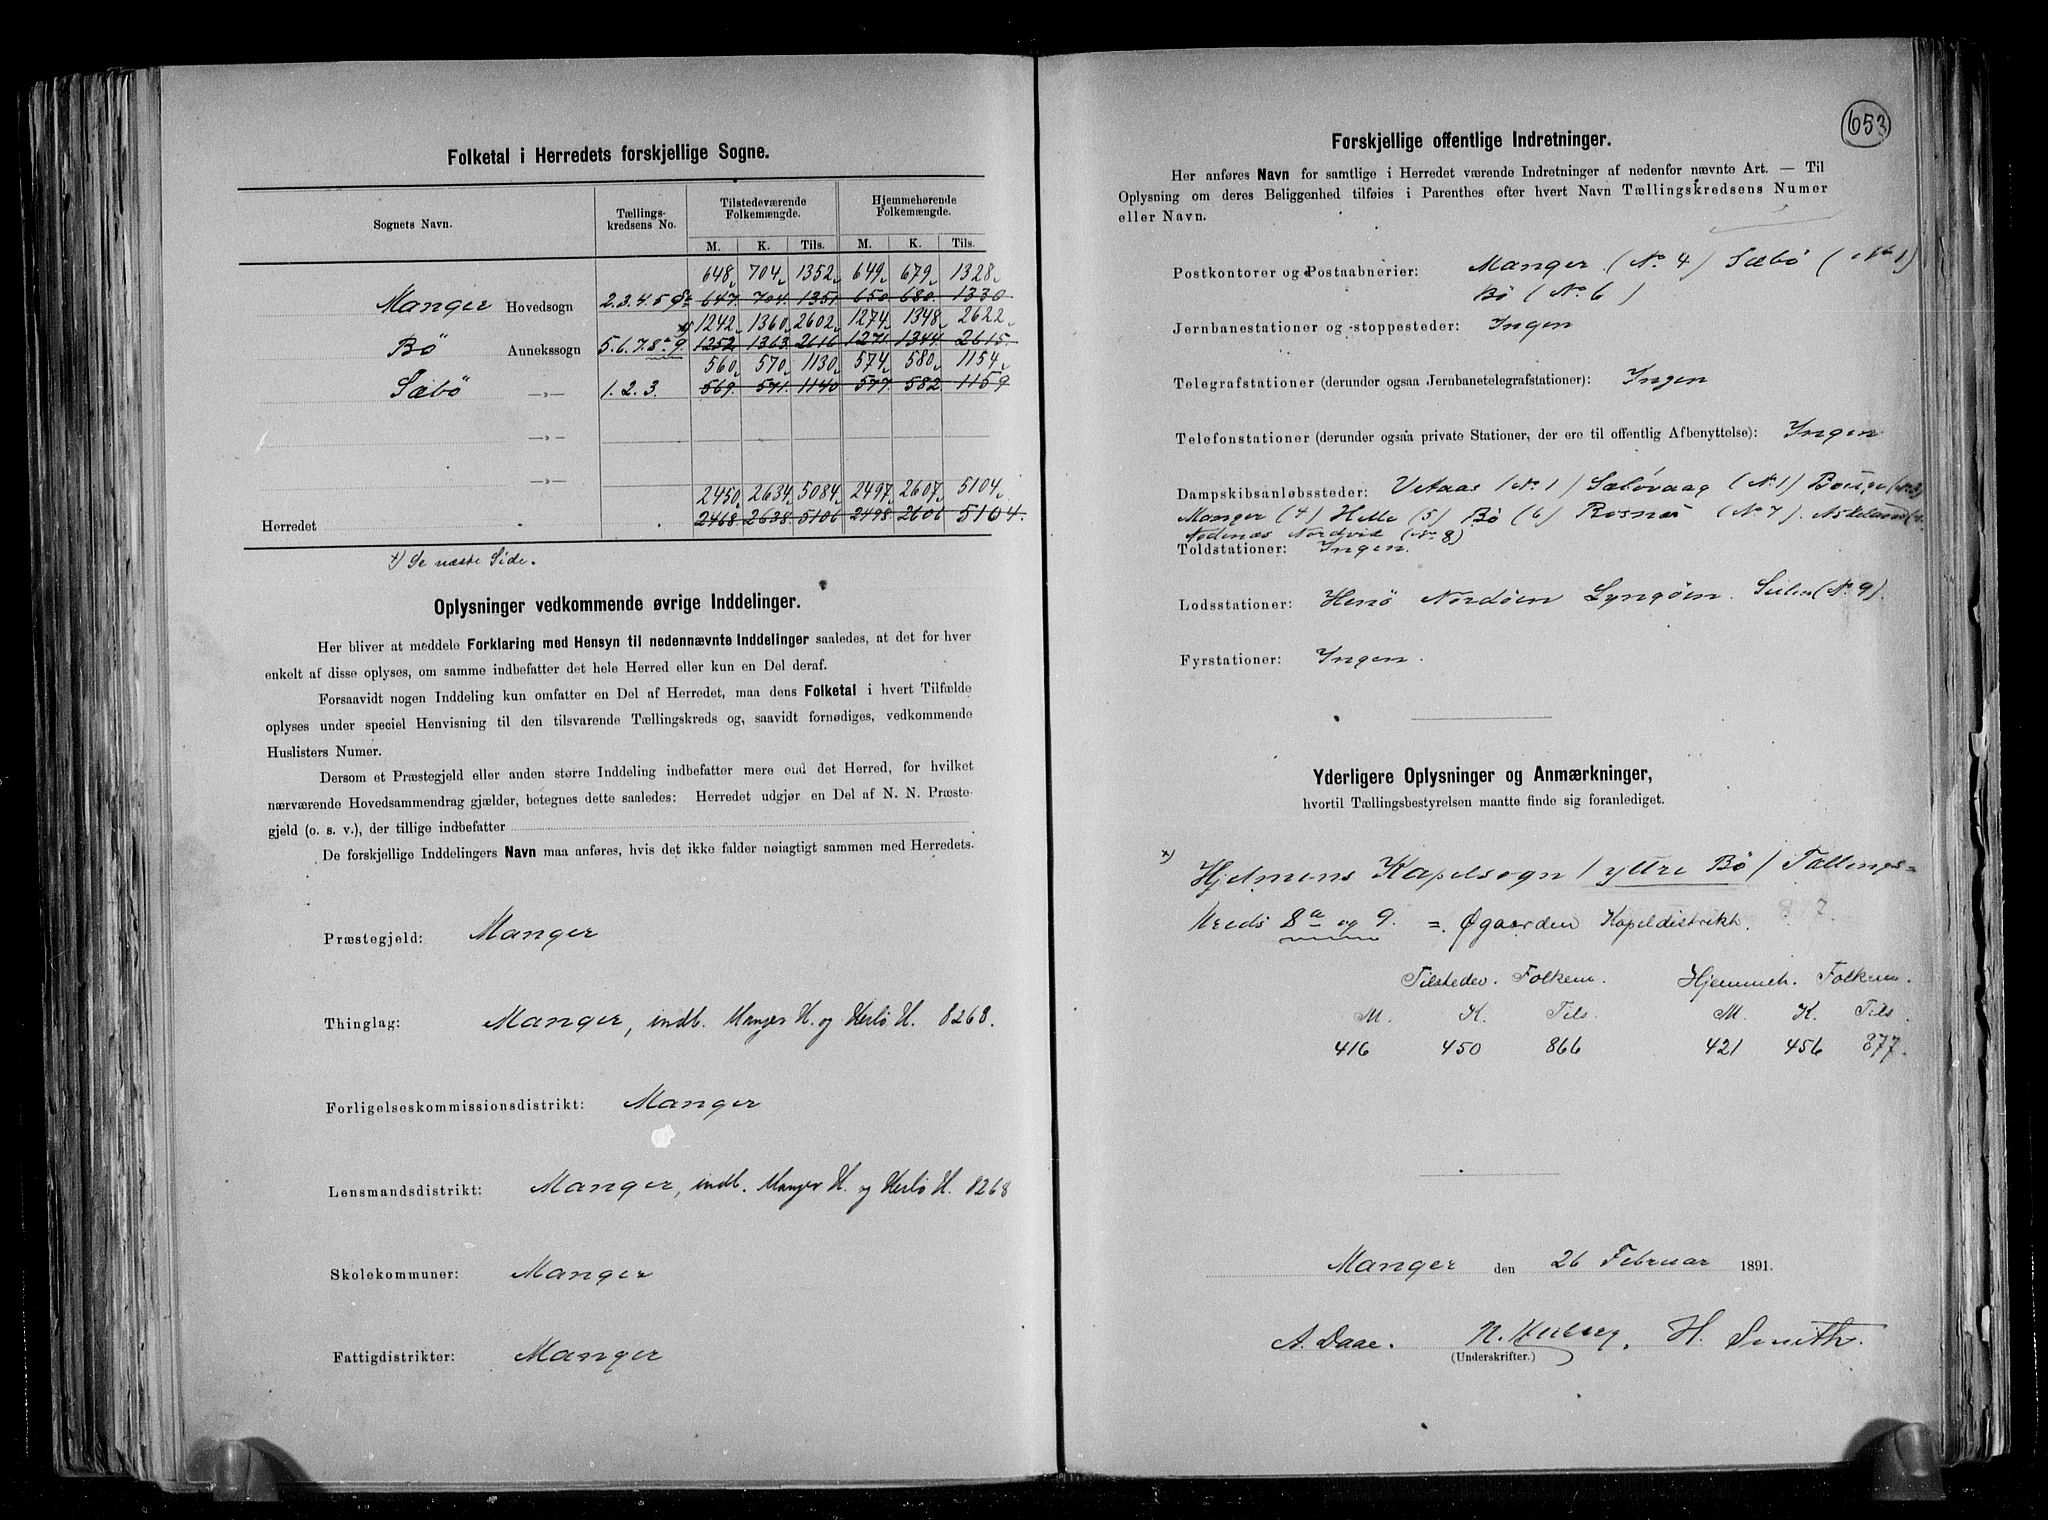 Folketal i Herredets forskjellige Sogne.
Sognets Navn. Tællings- kredsens No. Tilstedeværende Folkemængde. Hjemmehørende Folkemængde.
M. K. Tils. M. K. Tils.
648 704 1352 649 679 1328
Manger Hovedsogn 2.3.4.5 647. 704. 1351. 650. 680. 1330
1242 1360 2602 1274 1348 2622
Bö Annekssogn 5.6.7.8a 9 x) 1252 1363 2616 1271 1344 2615.
560 570 1130 574 580 1154
Sæbö —„— 1.2.3. 569. 571. 1140 577. 582 1159
—„—
—„—
2450 2634 5084 2497 2607 5104
Herredet 2468 2638 5106 2498 2606 5104.
x) Se næste Side.
Oplysninger vedkommende øvrige Inddelinger.
Her bliver at meddele Forklaring med Hensyn til nedennævnte Inddelinger saaledes, at det for hver
enkelt af disse oplyses, om samme indbefatter det hele Herred eller kun en Del deraf.
Forsaavidt nogen Inddeling kun omfatter en Del af Herredet, maa dens Folketal i hvert Tilfælde
oplyses under speciel Henvisning til den tilsvarende Tællingskreds og, saavidt fornødiges, vedkommende
Huslisters Numer.
Dersom et Præstegjeld eller anden større Inddeling indbefatter mere end det Herred, for hvilket
nærværende Hovedsammendrag gjælder, betegnes dette saaledes: Herredet udgjør en Del af N. N. Præste-
gjeld (o. s. v.), der tillige indbefatter
De forskjellige Inddelingers Navn maa anføres, hvis det ikke falder nøiagtigt sammen med Herredets.
Præstegjeld: Manger
Thinglag: Manger, indb. Manger H. og Herlö H. 8268.
Forligelseskommissionsdistrikt: Manger
Lensmandsdistrikt: Manger, indb. Manger H. og Herlö H. 8268
Skolekommuner: Manger
Fattigdistrikter: Manger
653
Forskjellige offentlige Indretninger.
Her anføres Navn for samtlige i Herredet værende Indretninger af nedenfor nævnte Art. — Til
Oplysning om deres Beliggenhed tilføies i Parenthes efter hvert Navn Tællingskredsens Numer
eller Navn.
Postkontorer og Postaabnerier: Manger (No 4) Sæbö (No 1)
Bö (No 6)
Jernbanestationer og -stoppesteder: Ingen
Telegrafstationer (derunder ogsaa Jernbanetelegrafstationer): Ingen
Telefonstationer (derunder ogsaa private Stationer, der ere til offentlig Afbenyttelse): Ingen
Dampskibsanløbssteder: Vetaas (No 1) Sæbövaag (No 1)
Manger (4) Helle (5) Bö (6) Rosnæs (No 7).
Nordvik (No 8)
Toldstationer: Ingen.
Lodsstationer: Hernö Nordöen Lyngöen. (No 9).
Fyrstationer: Ingen.
Yderligere Oplysninger og Anmærkninger,
hvortil Tællingsbestyrelsen maatte finde sig foranlediget.
x) Hjelmens Kapelsogn / yttre Bö / Tællings=
kreds 8a og 9. = Øgaarden Kapeldistrikt.
Tilstedev. Folkem. Hjemmeh. Folkem.
M. K. Tils. M. K. Tils.
416 450 866 421 456 877.
Manger den 26 Februar 1891.
A. Daae. H. Smith.
(Underskrifter.)